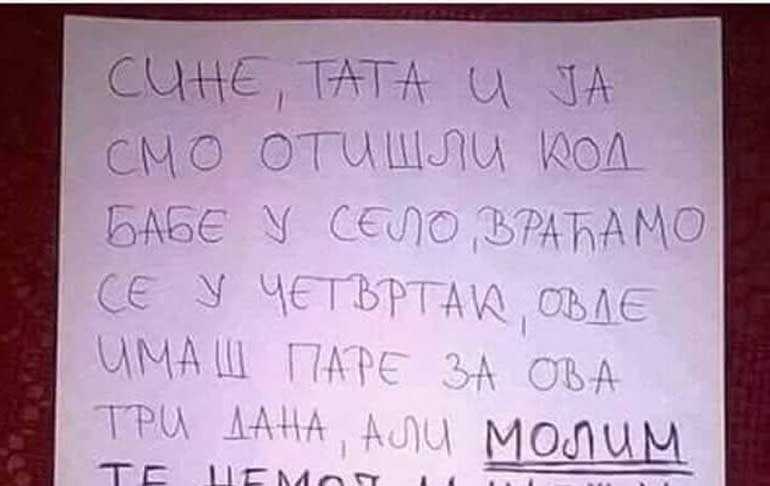 СИНЕ, ТАТА И ЈА
СМО ОТИШЛИ КОД
БАБЕ У СЕЛО, ВРАЋАМО
СЕ У ЧЕТВРТАК, ОВДЕ
ИМАШ ПАРЕ ЗА ОВА
ТРИ ДАНА, АЛИ МОЛИМ
ТЕ НЕМОЈ